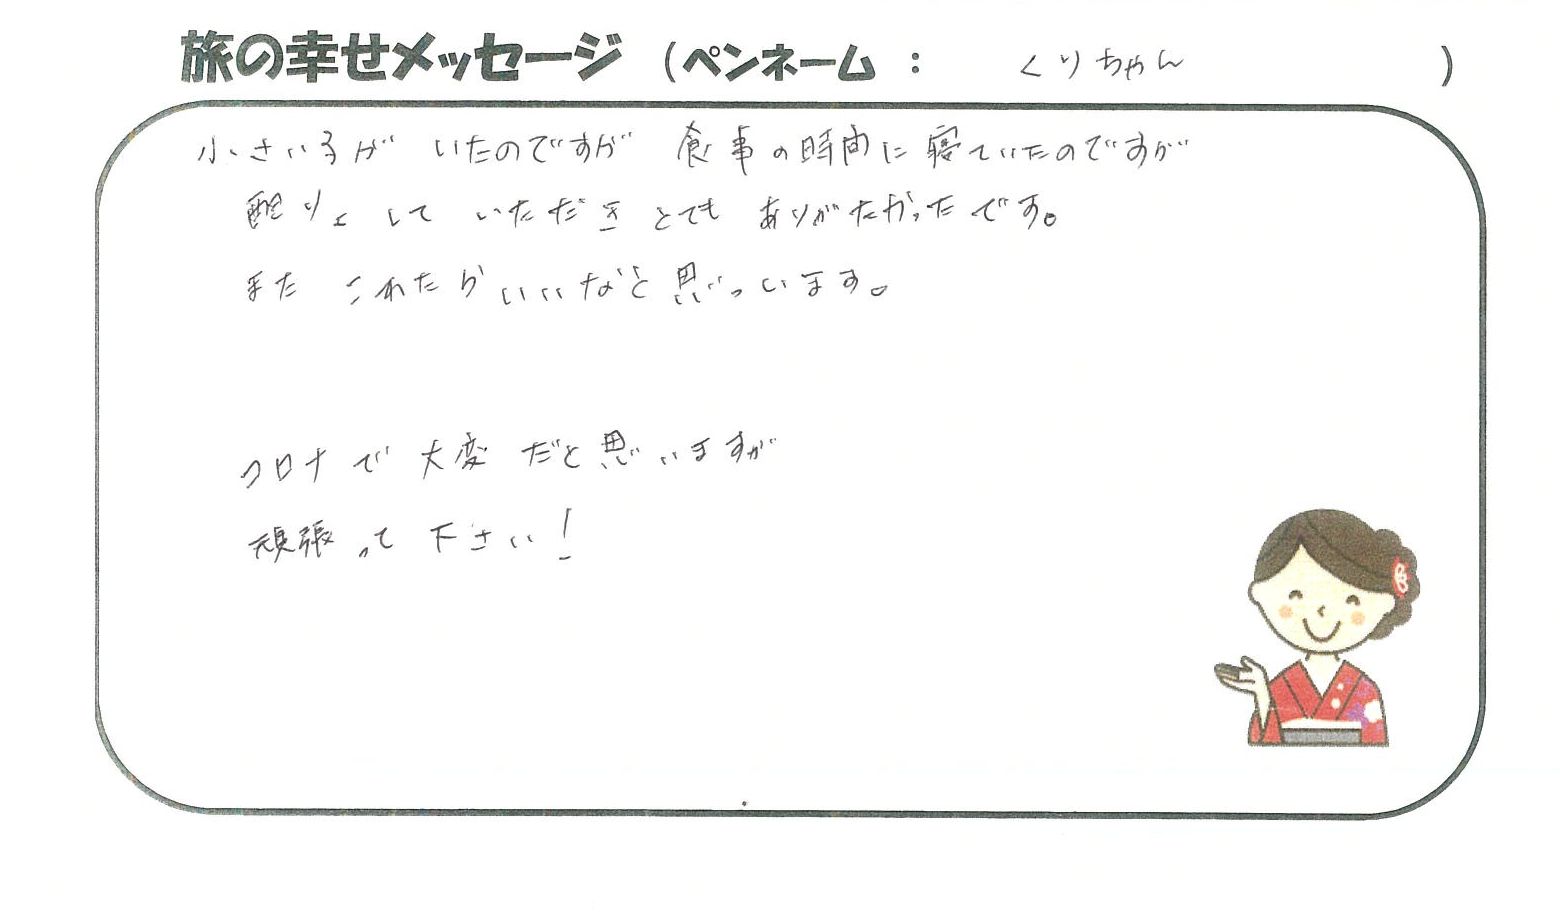 旅の幸せメッセージ (ペンネーム : くりちゃん )
小さい子が いたのですが 食事の時間に寝ていたのですが
配りょして いただき とても ありがたかったです。
また これたらいいなと思っいます。
コロナで 大変 だと思いますが
頑張って 下さい!